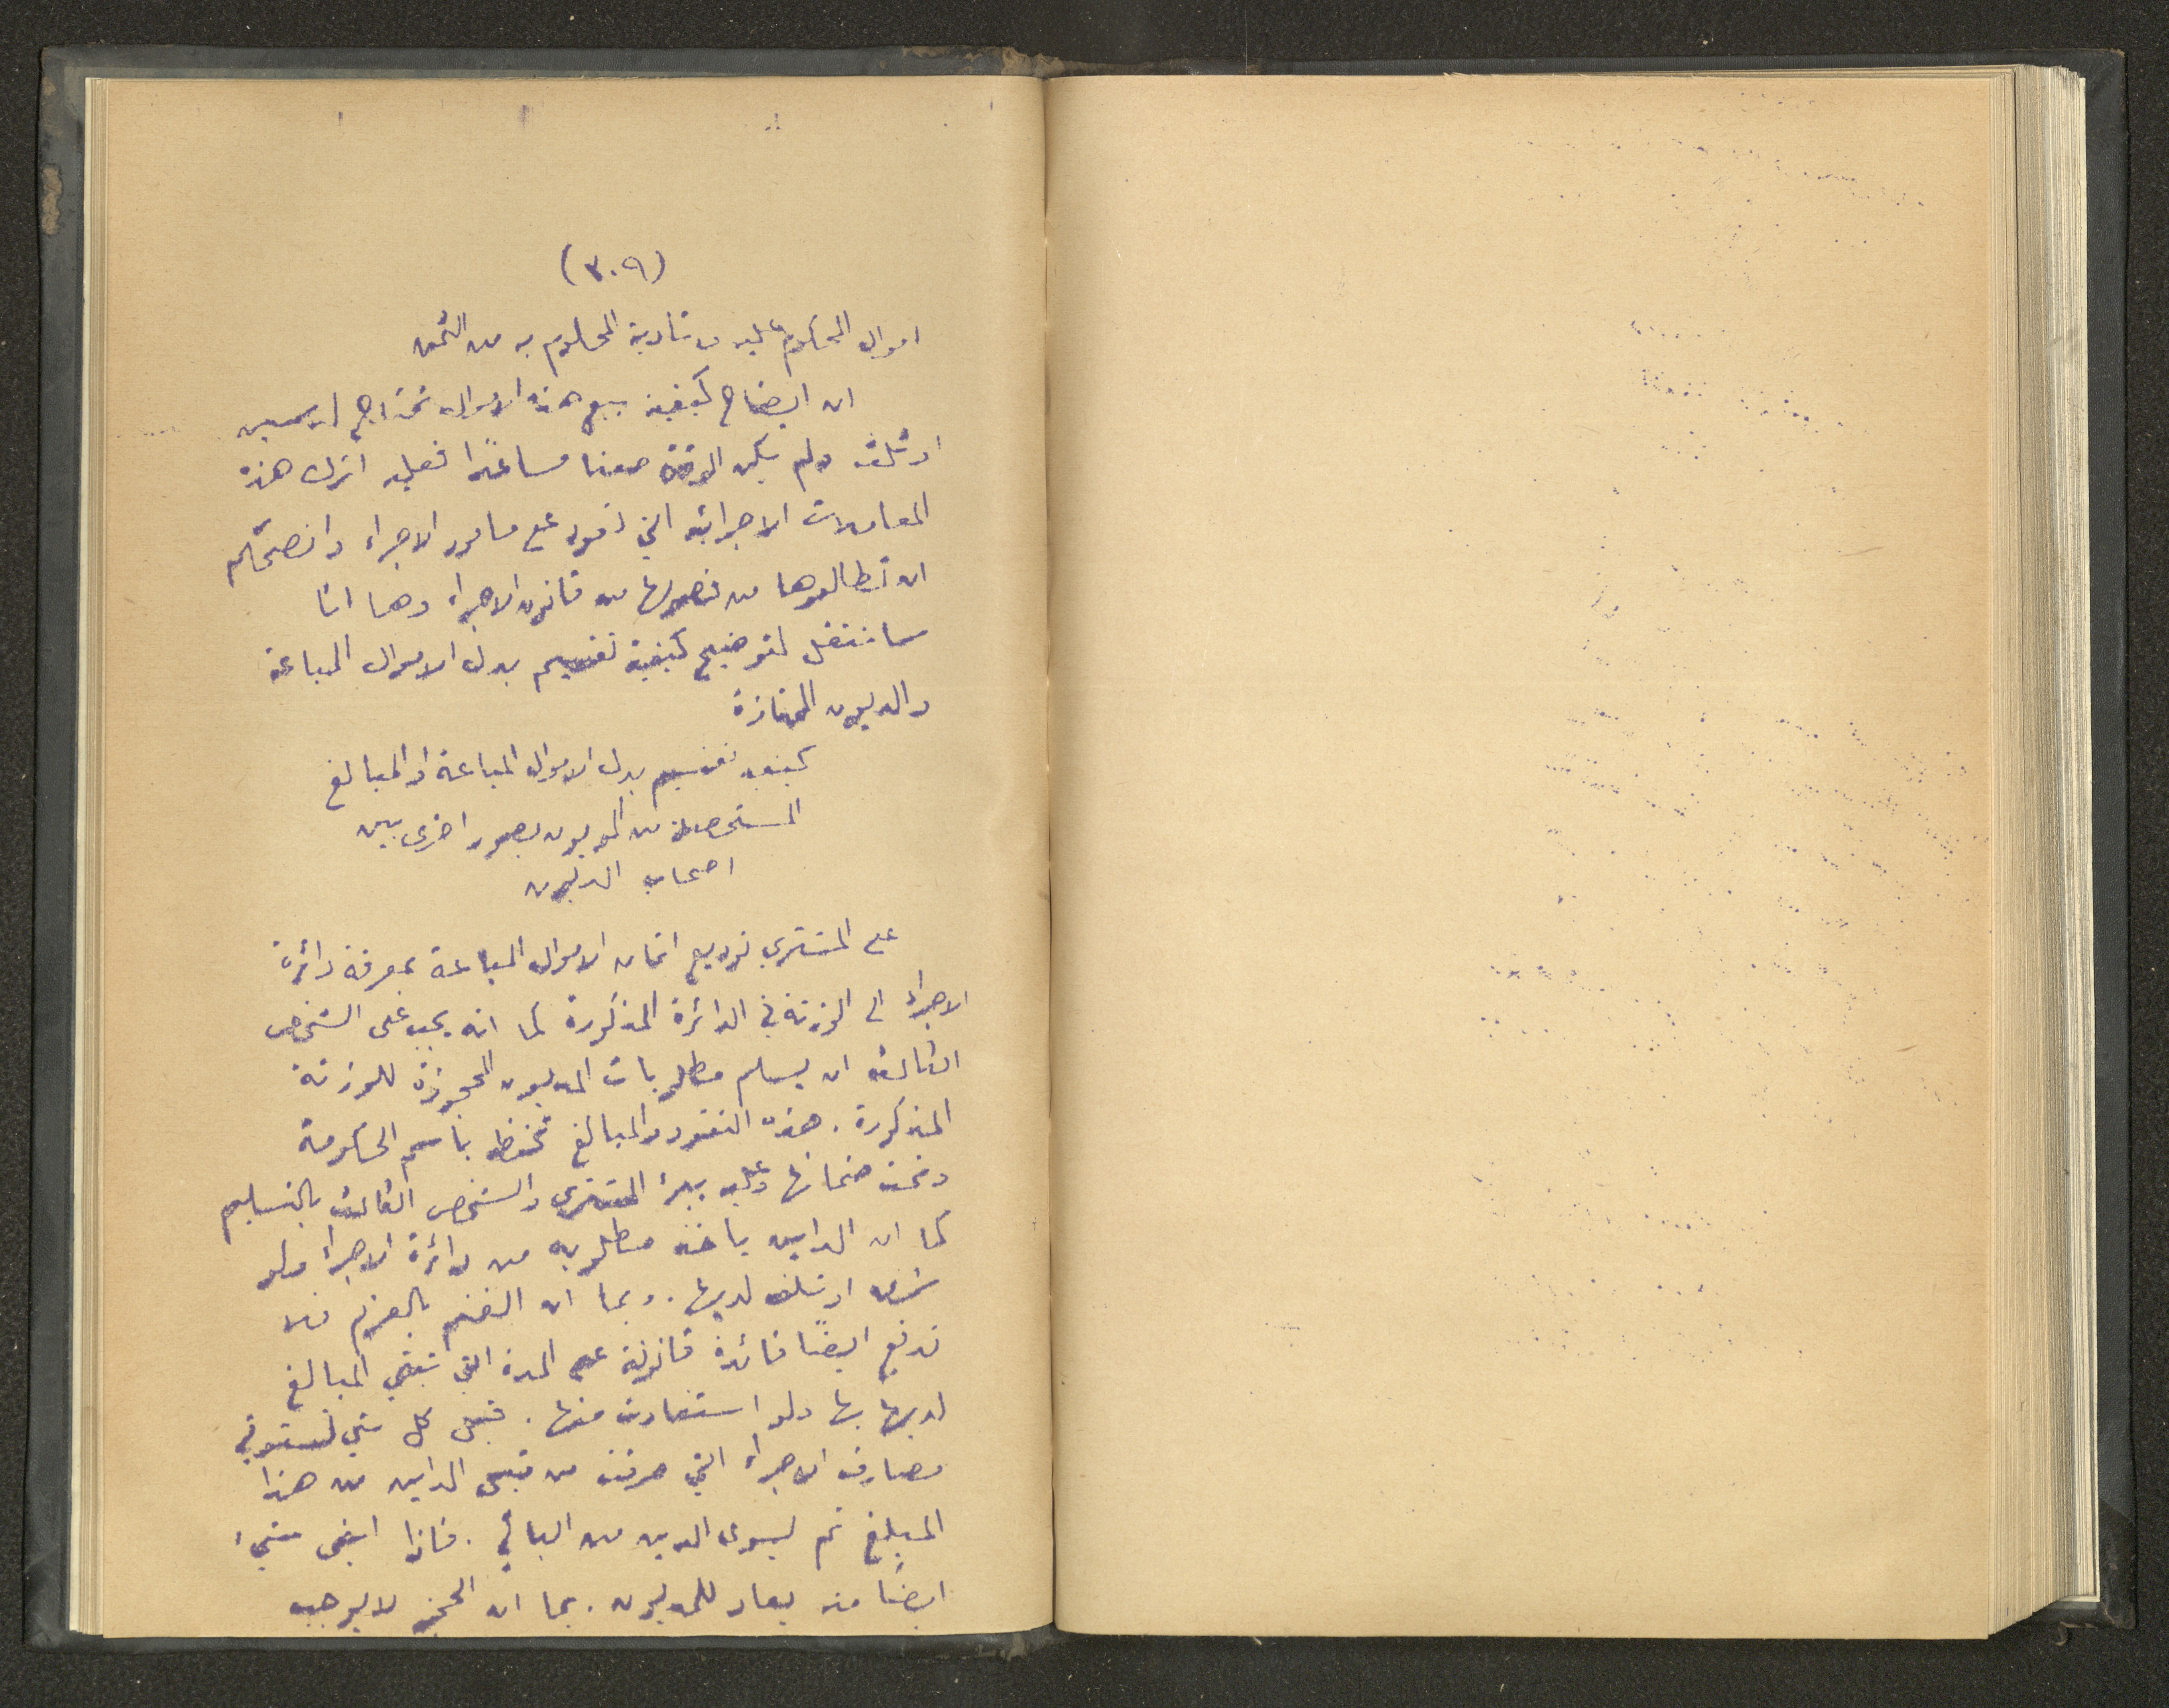 (٣٠٩)
اموال المحكوم عليه و تأدية المحكوم به من الثمن
ان ايضاح كيفية بيع هذه الاموال تحتاج لدرسين
او ثلاث ولم يكن الوقت معنا مساعدًا فعليه اترك هذه
المعاملات الاجرائية التي تعود على مأمور الاجراء وانصحكم
ان تطالعوها من فصولها من قانون الاجراء وها انا
سأنتقل لتوضيح كيفية تقسيم بدل الاموال المباعة
والديون الممتازة
كيفية تقسيم بدل الاموال المباعة او المبالغ
المستحصلة من المديون بصور اخرى بين
اصحاب الديون
على المشتري توديع اثمان الاموال المباعة بمعرفة دائرة
الاجراء الى الوزنة في الدائرة المذكورة كما انه يجب على الشخص
الثالث ان يسلم مطلوبات المديون المحجوزة للوزنة
المذكورة . هذه النقود والمبالغ تحفظ باسم الحكومة
وتحت ضمانها وعليه يبرأ المشتري والشخص الثالث بالتسليم
كما ان الداين يأخذ مطلوبه من دائرة الاجراء ولو
سرق او تلف لديها . وبما ان الغنم بالغرم فلا
تدفع ايضًا فائدة قانونية عن المدة التي تبقي المبالغ
لديها بها ولو استفادت منها . قبل كل شي تستوفي
مصارف الاجراء التي صرفت من قبل الداين من هذا
المبلغ ثم يسوى الدين من الباقي . فاذا ابقى شيء
ايضًا منه يعاد للمديون . بما ان الحجز لا يوجب